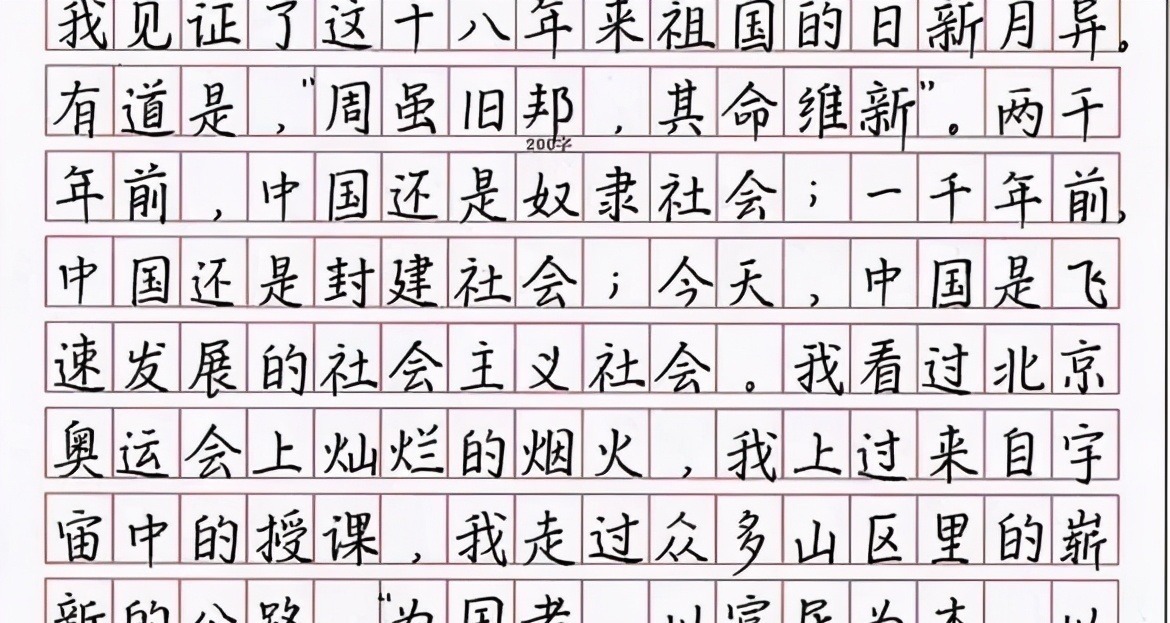 我见证了这十八年来祖国的日新月异。
有道是，“周虽旧邦，其命维新”。两千
200字
年前，中国还是奴隶社会；一千年前，
中国还是封建社会；今天，中国是飞
速发展的社会主义社会。我看过北京
奥运会上灿烂的烟火，我上过来自宇
宙中的授课，我走过众多山区里的崭
新的公路。“为国者，以富民为本，以